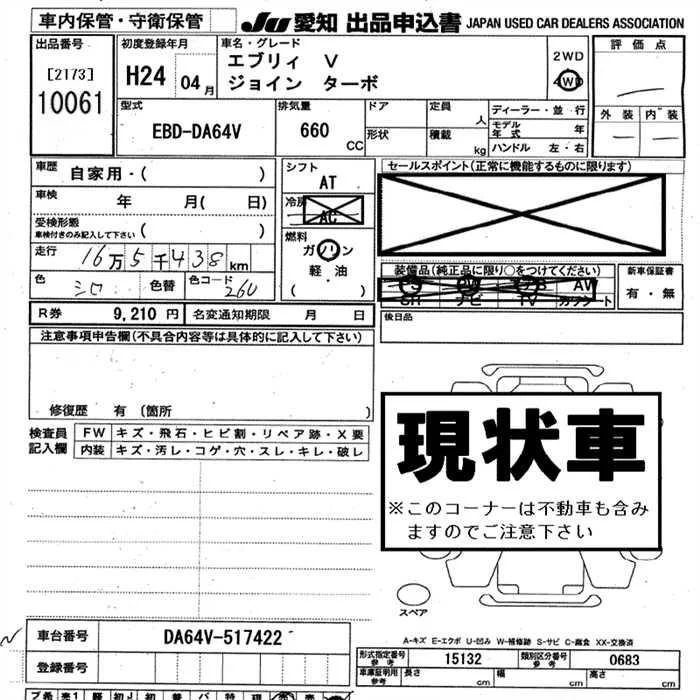 車内保管・守衛保管
JU 愛知 出品申込書 JAPAN USED CAR DEALERS ASSOCIATION
出品番号
[2173]
10061
初度登録年月
H24 04月
車名・グレード
エブリィ V
ジョイン ターボ
2WD
4WD
評価点
外装 内装
型式
EBD-DA64V
排気量
660 CC
ドア
形状
定員 人
積載 kg
ディーラー・並・行
モデル年式 年
ハンドル 左・右
車歴 自家用・( )
車検 年 月( 日)
受検形態
車検付きのみ記入して下さい ( )
走行 16万5千438km
色 シロ 色替 色コード 26U
シフト
AT
冷房
AC
燃料
ガソリン
軽・油
( )
セールスポイント(正常に機能するものに限ります)
装備品(純正品に限り○をつけてください)
PS PW エアB AW
SR ナビ TV カワシート
新車保証書
有・無
R券 9,210円 名変通知期限 月 日
後日品
注意事項申告欄(不具合内容等は具体的に記入して下さい)
修復歴 有 (箇所 )
検査員記入欄
FW キズ・飛石・ヒビ割・リペア跡・X要
内装 キズ・汚レ・コゲ・穴・スレ・キレ・破レ
現状車
※このコーナーは不動車も含み
ますのでご注意下さい
スペア
A-キズ E-エクボ U-凹み W-補修跡 S-サビ C-腐食 XX-交換済
車台番号 DA64V-517422
登録番号
形式指定番号 参考 15132 類別区分番号 参考 0683
車庫証明用 参考 長さ cm 幅 cm 高さ cm